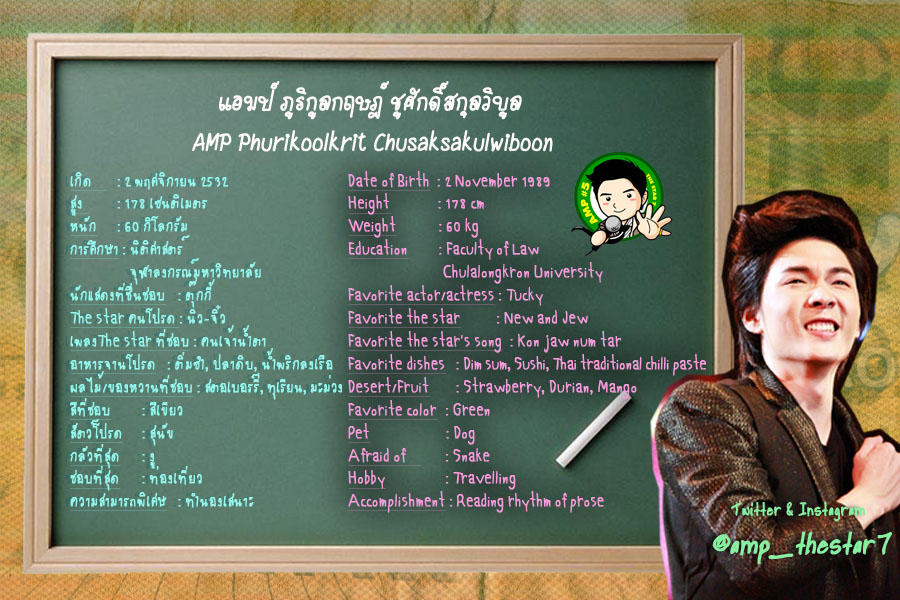 แอมป์ ภูริกูลกฤษฎ์ ชูศักดิ์สกุลวิบูล
AMP Phurikoolkrit Chusaksakulwiboon
เกิด : 2 พฤศจิกายน 2532
สูง : 178 เซนติเมตร
หนัก : 60 กิโลกรัม
การศึกษา : นิติศาสตร์
จุฬาลงกรณ์มหาวิทยาลัย
นักแสดงที่ชื่นชอบ : ตุ๊กกี้
The star คนโปรด : นิว-จิ๋ว
เพลงThe star ที่ชอบ : คนเจ้าน้ำตา
อาหารจานโปรด : ติ่มซำ, ปลาดิบ, น้ำพริกลงเรือ
ผลไม้/ของหวานที่ชอบ : สตอเบอร์รี่, ทุเรียน, มะม่วง
สีที่ชอบ : สีเขียว
สัตว์โปรด : สุนัข
กลัวที่สุด : งู
ชอบที่สุด : ท่องเที่ยว
ความสามารถพิเศษ : ทำนองเสนาะ
Date of Birth : 2 November 1989
Height : 178 cm
Weight : 60 kg
Education : Faculty of Law
Chulalongkron University
Favorite actor/actress : Tucky
Favorite the star : New and Jew
Favorite the star's song : Kon jaw num tar
Favorite dishes : Dim sum, Sushi, Thai traditional chilli paste
Desert/Fruit : Strawberry, Durian, Mango
Favorite color : Green
Pet : Dog
Afraid of : Snake
Hobby : Travelling
Accomplishment : Reading rhythm of prose
AMP #5
THE STAR
Twitter & Instagram
@amp_thestar7